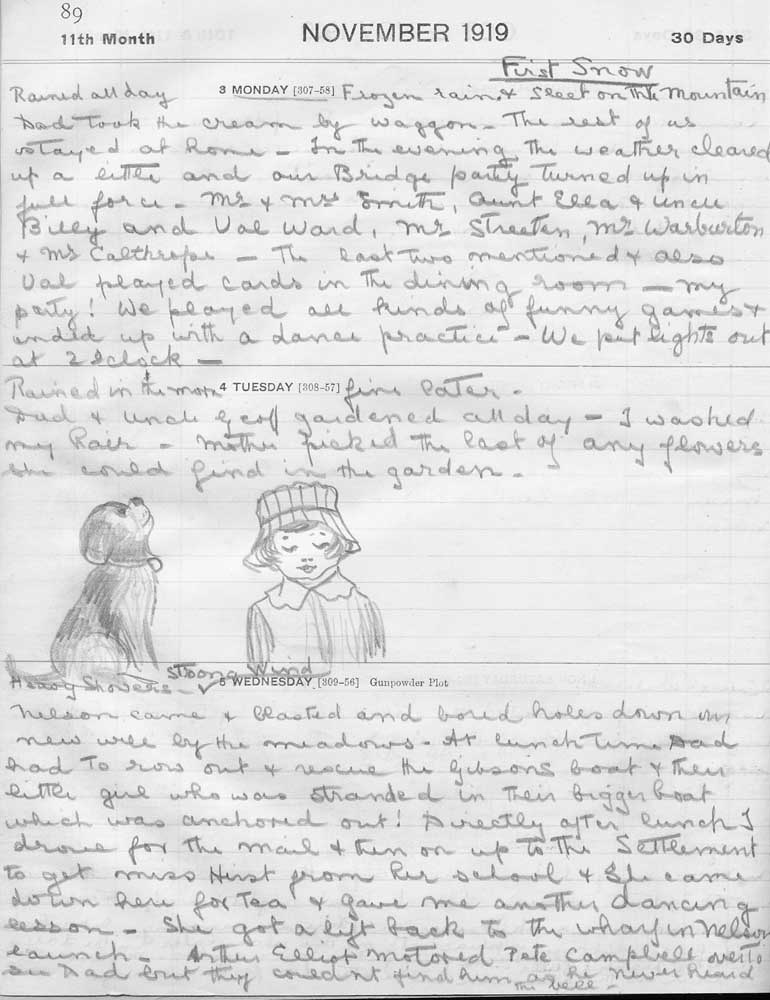 89
11th Month NOVEMBER 1919 30 Days
First Snow
Rained all day 3 MONDAY [307-58] Frozen rain & sleet on the Mountain
Dad took the cream by waggon - The rest of us
stayed at home - In the evening the weather cleared
up a little and our Bridge party turned up in
full force - Mr & Mrs Smith, Aunt Ella & Uncle
Billy and Val Ward, Mr Streeten, Mr Warburton
& Mr Calthrope - The last two mentioned & also
Val played cards in the dining room - my
party! We played all kinds of funny games &
ended up with a dance practice - We put lights out
at 2 o'clock -
Rained in the morn 4 TUESDAY [308-57] fine later -
Dad & Uncle Geoff gardened all day - I washed
my hair - Mother picked the last of any flowers
she could find in the garden -
Heavy Showers - Strong Wind 5 WEDNESDAY [309-56] Gunpowder Plot
Nelson came & blasted and bored holes down our
new well by the meadows - At lunch time Dad
had to row out & rescue the Gibsons boat & their
little girl who was stranded in their bigger boat
which was anchored out! Directly after lunch I
drove for the mail & then on up to the Settlement
to get Miss Hirst from her school & She came
down here for Tea & gave me another dancing
lesson - She got a lift back to the wharf in Nelson
launch - Arthur Elliot motored Pete Campbell over to
see Dad but they couldnt find him as he never heard
the bell -